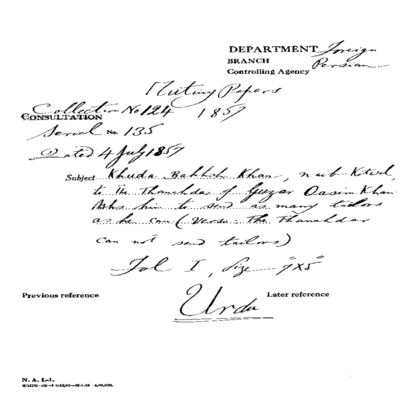 DEPARTMENT Foreign
BRANCH Persian
Controlling Agency
Mutiny Papers
Collection No 124 1857
CONSULTATION
Serial No 135
Dated 4 July 1857
Subject Khuda Bakhsh Khan, naib Kotwal,
to the Thanahdar of Guzar Qasim Khan
Asks him to send as many tailors
as he can (Verso: The Thanahdar
can not send tailors)
Fol I, Size 7"X5"
Previous reference Later reference
Urdu
N. A. I.-1.